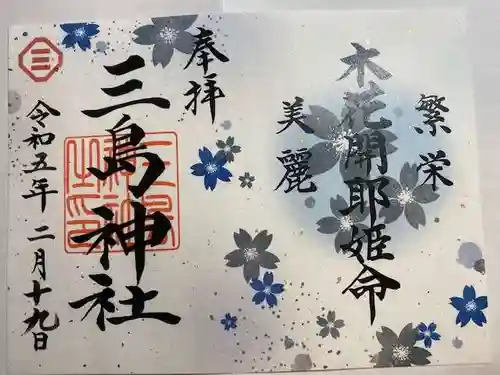 繁栄
木花開耶姫命
美麗
奉拝
三島神社
令和五年二月十九日
三